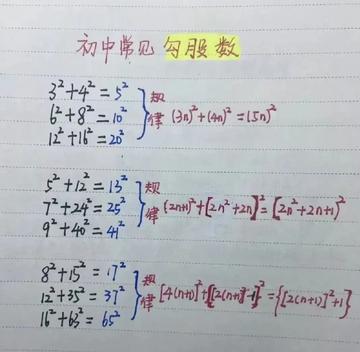 初中常见勾股数
3²+4²=5²
6²+8²=10²
12²+16²=20²
规律 (3n)²+(4n)²=(5n)²
5²+12²=13²
7²+24²=25²
9²+40²=41²
规律 (2n+1)²+[2n²+2n]²=[2n²+2n+1)²
8²+15²=17²
12²+35²=37²
16²+63²=65²
规律 [4(n+1)]²+{[2(n+1)]²-1}²={[2(n+1)]²+1}